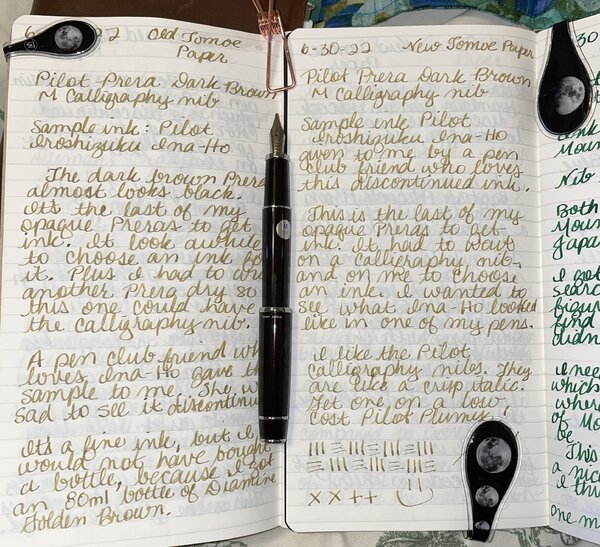 6 2 Old Tomoe
Paper
Pilot Prera Dark Brown
M Calligraphy nib
Sample ink: Pilot
Iroshizuku Ina-Ho
The dark brown Prera
almost looks black.
It's the last of my
opaque Preras to get
ink. It took awhile
to choose an ink fo
it. Plus I had to
another Prera dry so
this one could have
the calligraphy nib.
A pen club friend wh
loves Ina-Ho gave th
sample to me. She w
sad to see it discontinu
It's a fine ink, but I
would not have bought
a bottle, because I got
an 80ml bottle of Diamine
Golden Brown.
6-30-22 New Tomoe Paper
Pilot Prera Dark Brown
M Calligraphy nib
Sample ink Pilot
Iroshizuku Ina-Ho
given to me by a pen
club friend who loves
this discontinued ink.
This is the last of my
opaque Preras to get
ink. It had to wait
on a calligraphy nib
and on me to choose
an ink. I wanted to
see what Ina-Ho looked
like in one of my pens.
I like the Pilot
calligraphy nibs. They
are like a crisp italic.
Get one on a low
cost Pilot Plumix,
X X + +
30
Moun
Nib
Both
Moun
Japa
I got
searc
figur
find
didn
I nee
which
wher
of Mo
be
This
a nic
I thi
one m